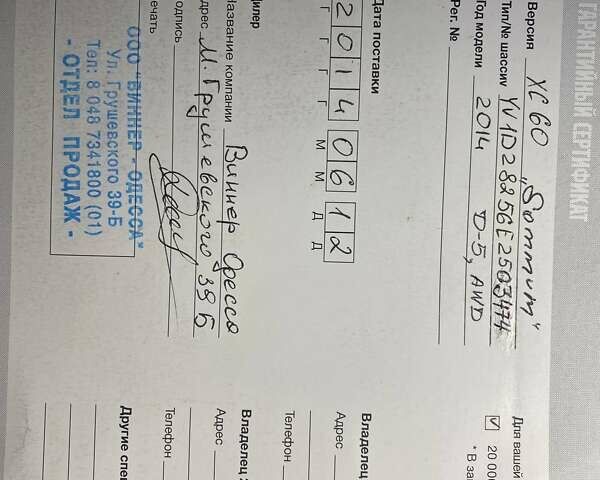 ГАРАНТИЙНЫЙ СЕРТИФИКАТ
Версия XC 60 "Sommum"
Тип/№ шасси YV1DZ8256E2503474
Год модели 2014 D-5, AWD
Рег. №
Дата поставки
2 0 1 4 0 6 1 2
Г Г Г Г М М Д Д
Дилер
Название компании Виннер Одесса
Адрес М. Грушевского 39Б
Подпись
Печать
ООО "ВИННЕР - ОДЕССА"
Ул. Грушевского 39-Б
Тел: 8 048 7341800 (01)
- ОТДЕЛ ПРОДАЖ -
Для вашей
20 000
* В за
Владелец
Адрес
Телефон
Владелец
Адрес
Телефон
Другие